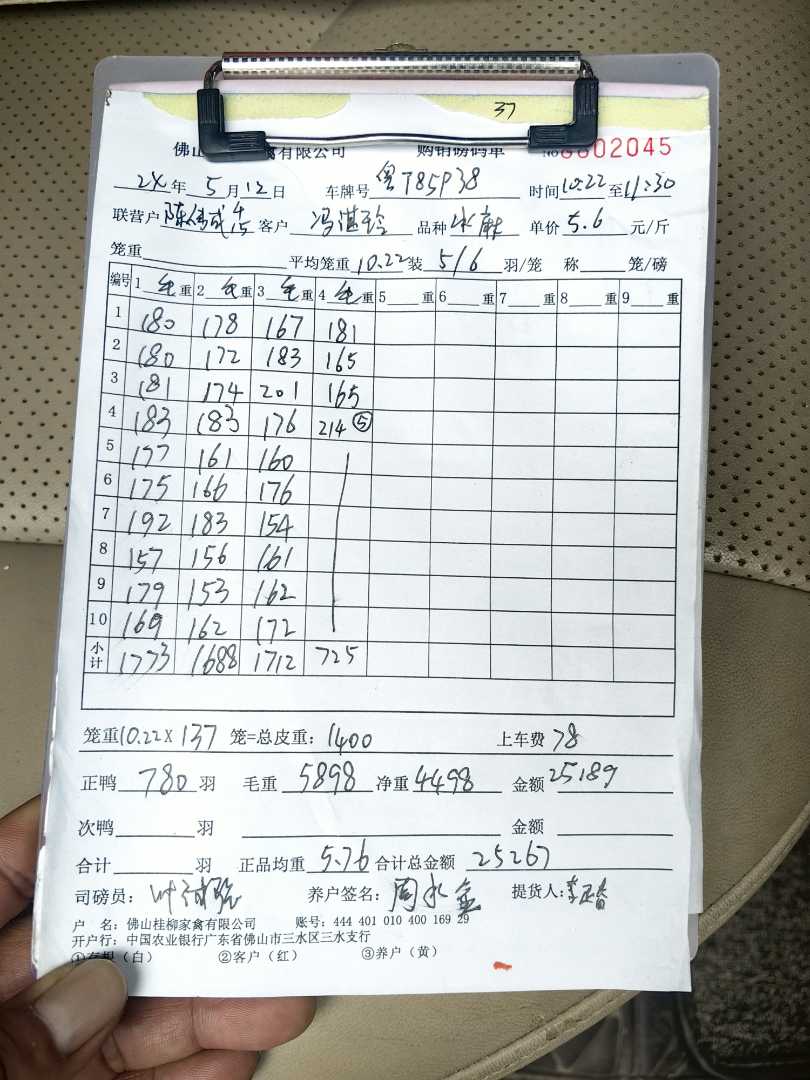 37
佛山 禽有限公司 购销磅码单 No 8802045
24年 5月12日 车牌号 粤T85P38 时间10:22至11:30
联营户 陈伟成 4/15 客户 冯湛玲 品种 水麻 单价 5.6 元/斤
笼重 平均笼重10.22装 5/6 羽/笼 称 笼/磅
编号 1 毛重 2 毛重 3 毛重 4 毛重 5 重 6 重 7 重 8 重 9 重
1 180 178 167 181
2 180 172 183 165
3 181 174 201 165
4 183 183 176 214 ⑤
5 177 161 160
6 175 166 176
7 192 183 154
8 157 156 161
9 179 153 162
10 169 162 172
小计 1773 1688 1712 725
笼重10.22×137 笼=总皮重：1400 上车费 78
正鸭 780 羽 毛重 5898 净重 4498 金额 25189
次鸭 羽 金额
合计 羽 正品均重 5.76 合计总金额 25267
司磅员： 养户签名： 提货人：
户 名：佛山桂柳家禽有限公司 账号：444 401 010 400 169 29
开户行：中国农业银行广东省佛山市三水区三水支行
①存根（白） ②客户（红） ③养户（黄）